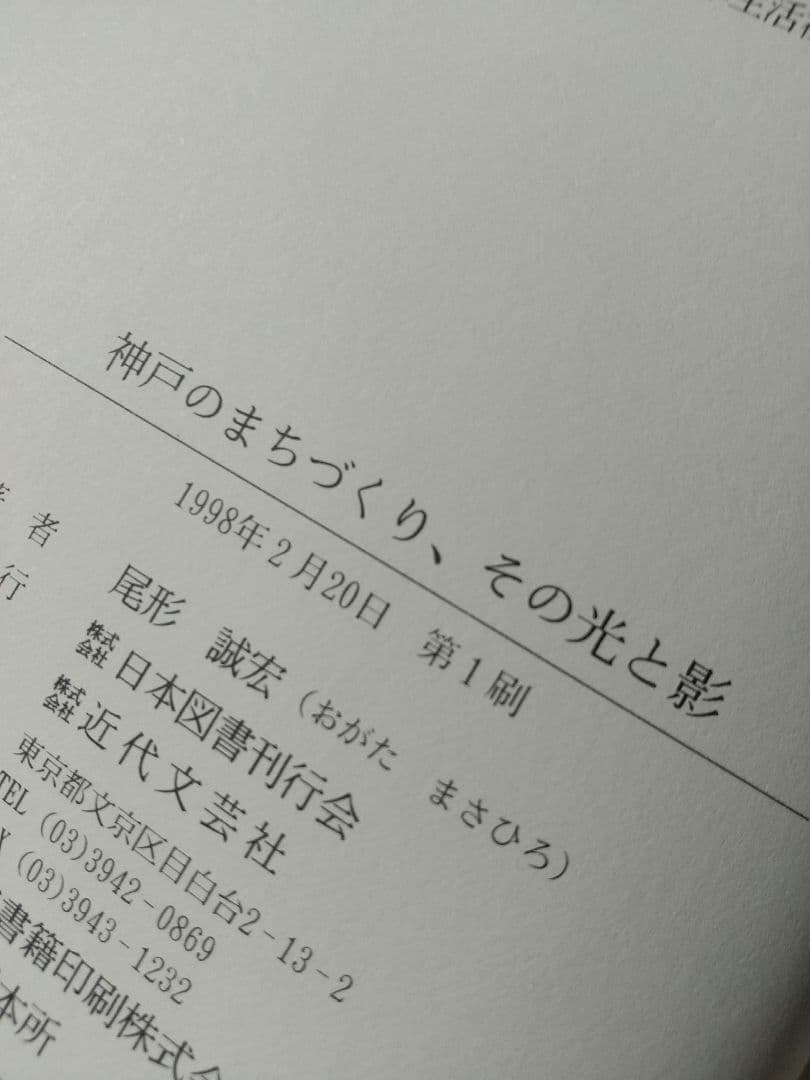 生活
神戸のまちづくり、その光と影
1998年2月20日 第1刷
著者 尾形 誠宏（おがた まさひろ）
行 株式会社 日本図書刊行会
株式会社 近代文芸社
東京都文京区目白台2-13-2
TEL (03)3942-0869
(03)3943-1232
書籍印刷株式会
本所